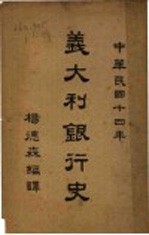 中華民國十四年
義大利銀行史
楊德森編譯